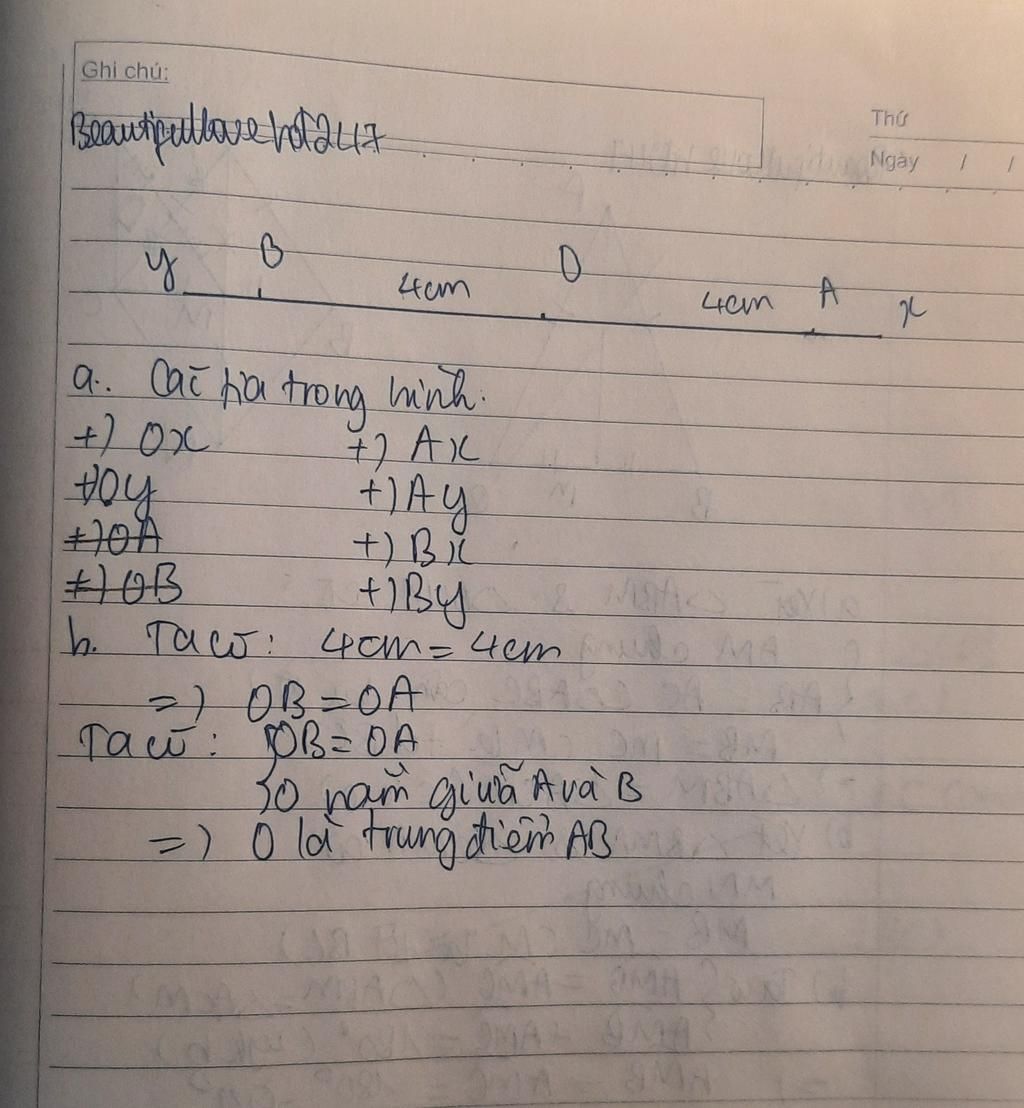 Ghi chú:
Beautifullovehot247
Thứ
Ngày / /
y B 4cm O 4cm A x
a. Các tia trong hình:
+) Ox +) Ax
+) Oy +) Ay
+) OA +) Bx
+) OB +) By
b. Ta có: 4cm = 4cm
=) OB = OA
Ta có: { OB = OA
O nằm giữa A và B
=) O là trung điểm AB